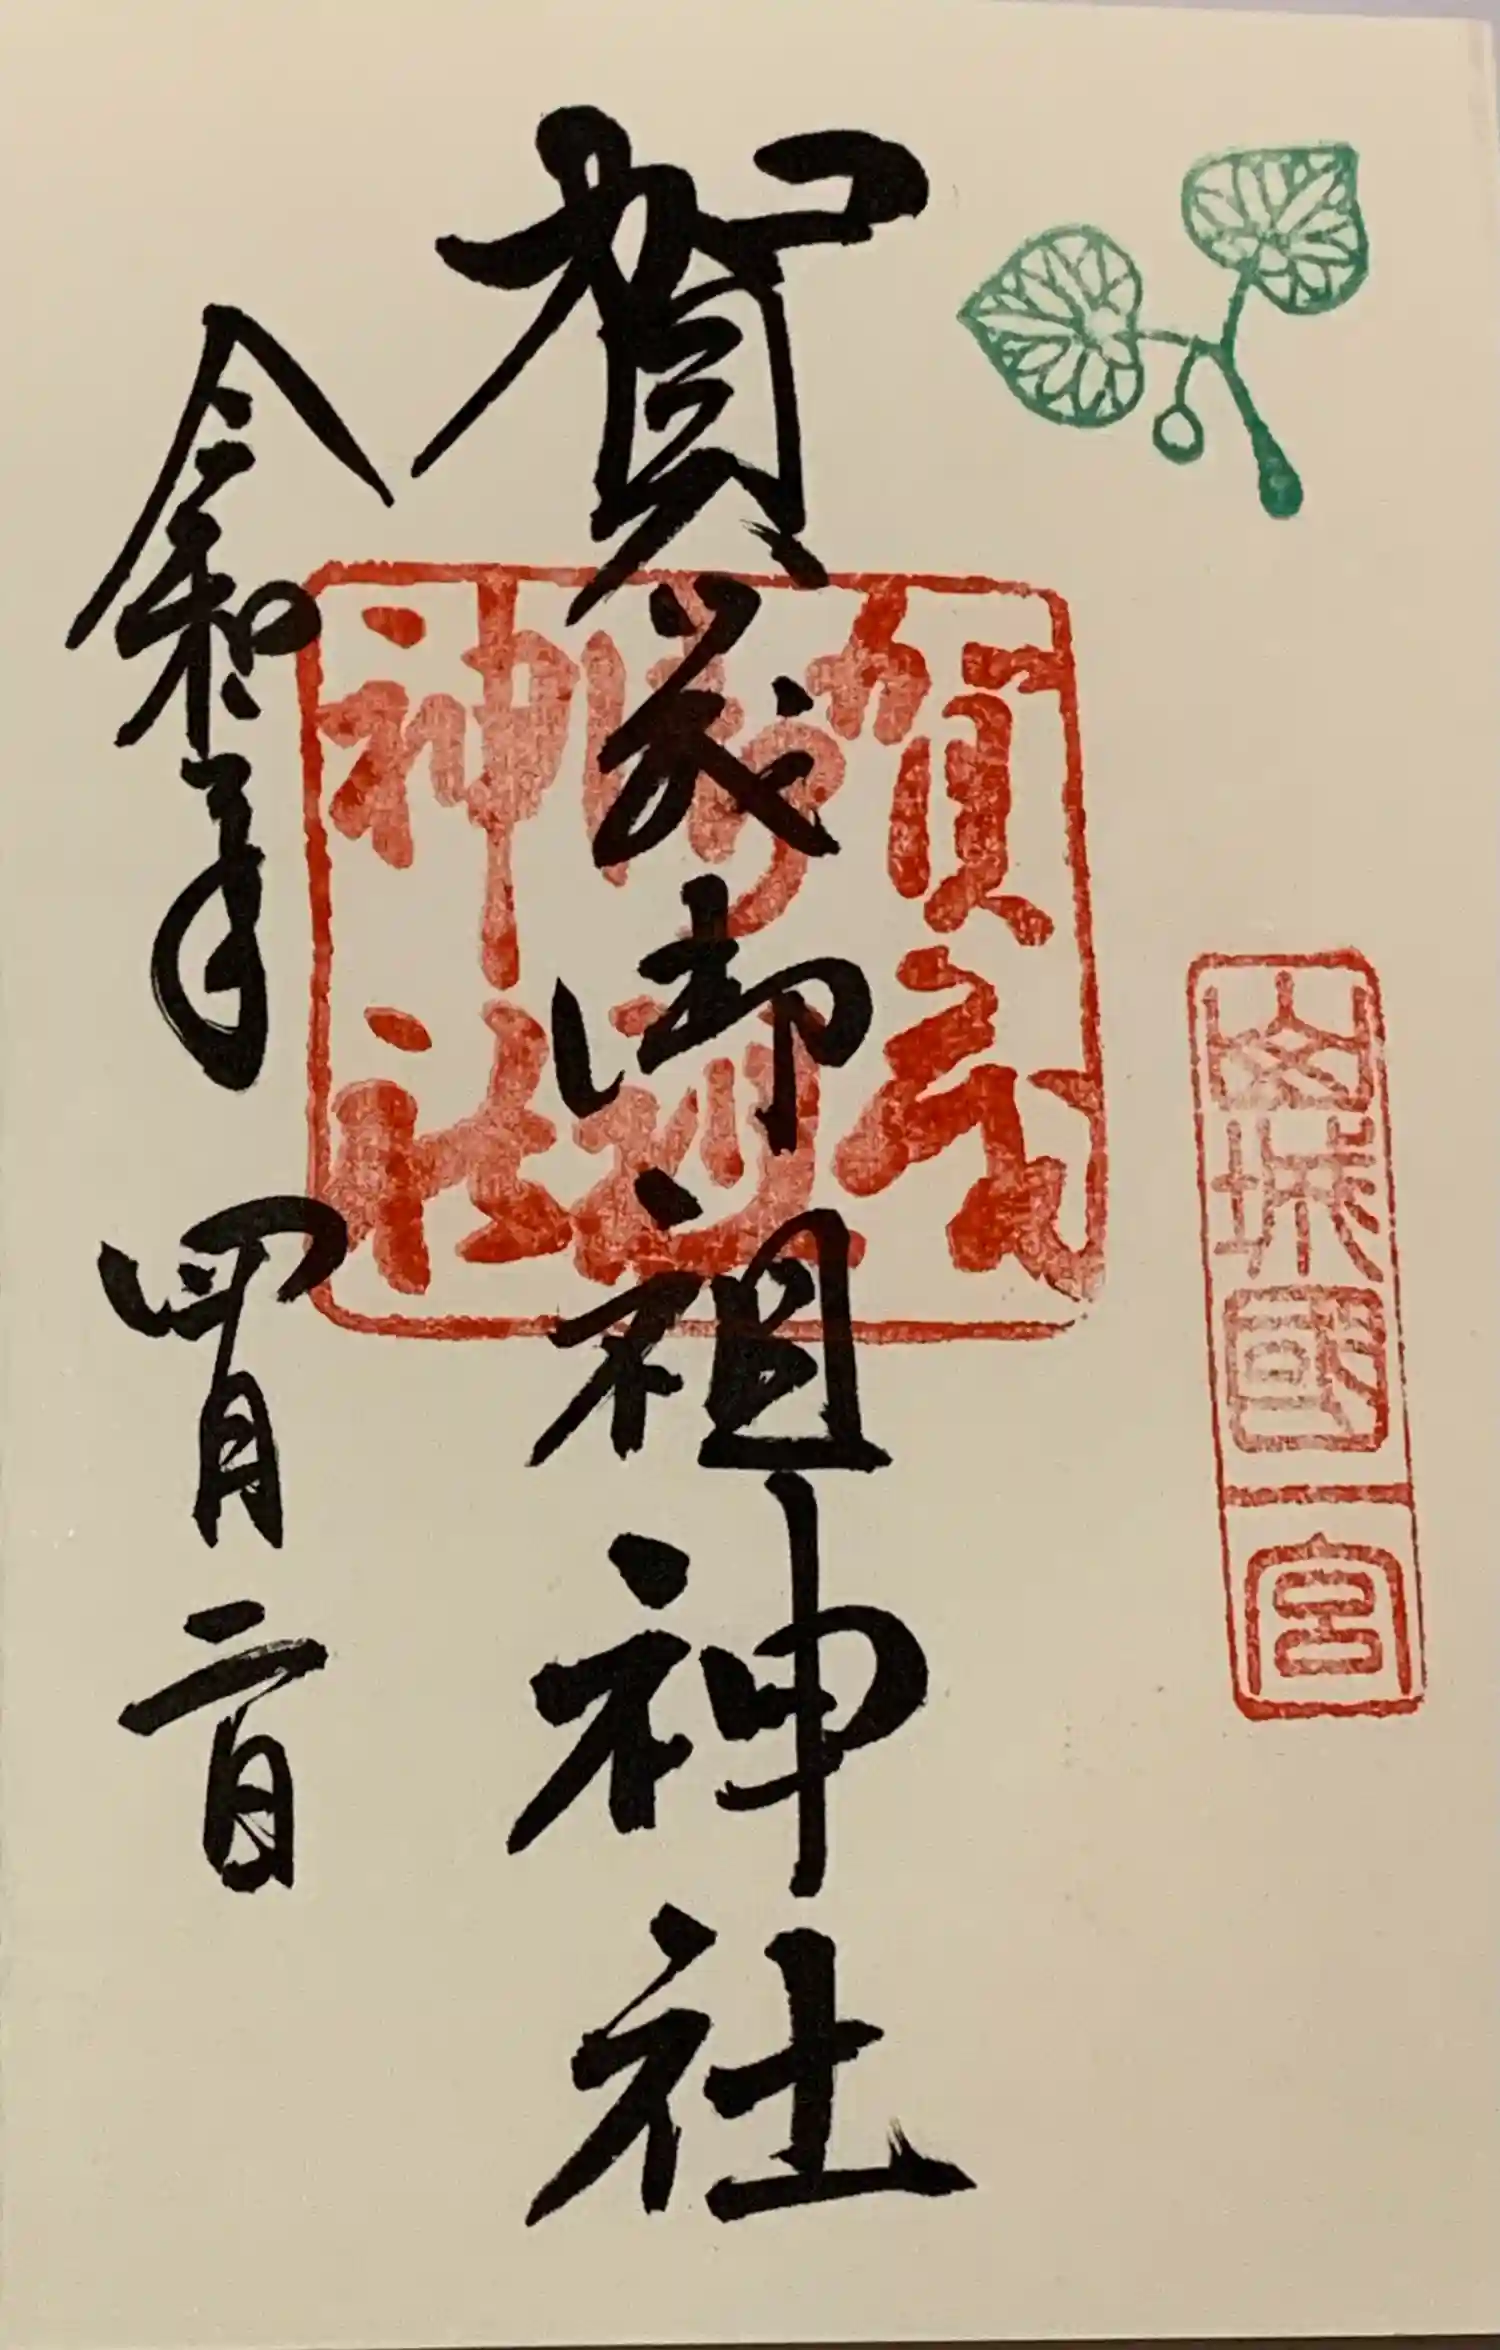 山城國一宮
賀茂御祖神社
賀茂御祖神社
令和年 四月二日